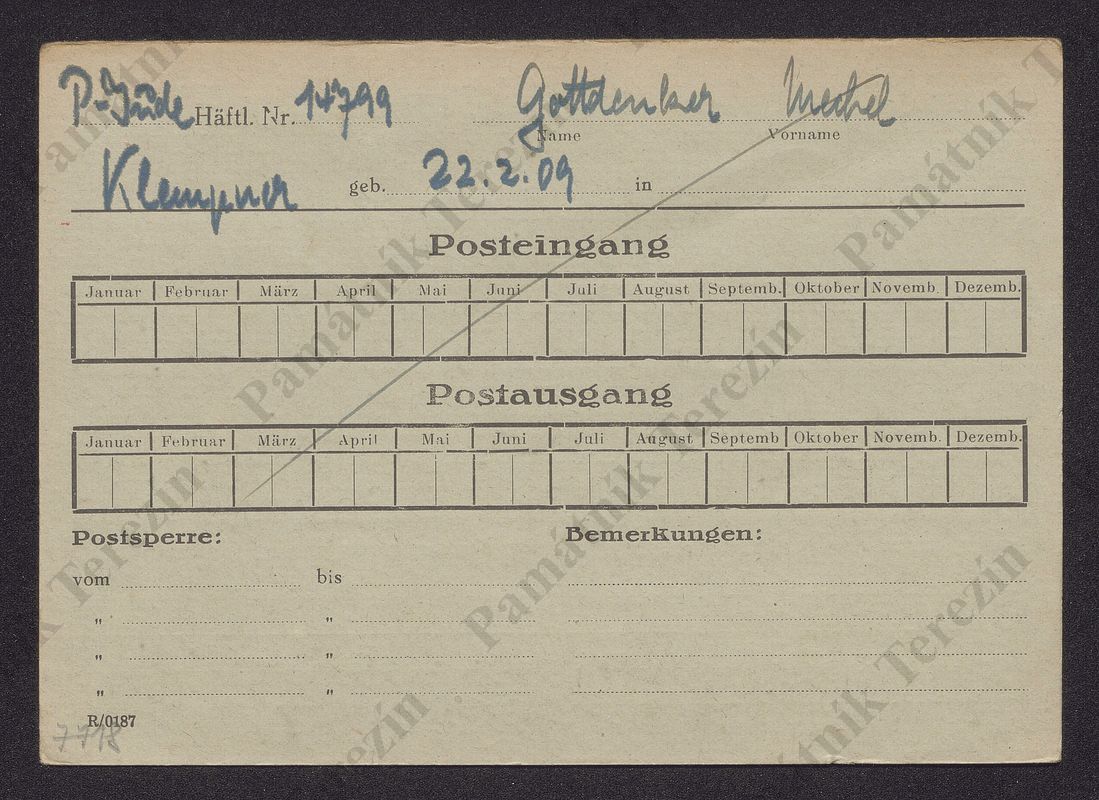 P-Jude Häftl. Nr. 14799 Gottdenker Mechel
Name Vorname
Klempner geb. 22.2.09 in
Posteingang
Januar Februar März April Mai Juni Juli August Septemb. Oktober Novemb. Dezemb.
Postausgang
Januar Februar März April Mai Juni Juli August Septemb Oktober Novemb. Dezemb.
Postsperre: Bemerkungen:
vom bis
" "
" "
" "
R/0187
7718
Památník Terezín